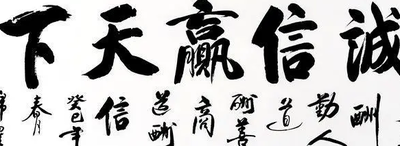 誠信贏天下
酬勤人道酬善商道酬信
癸巳年
春月